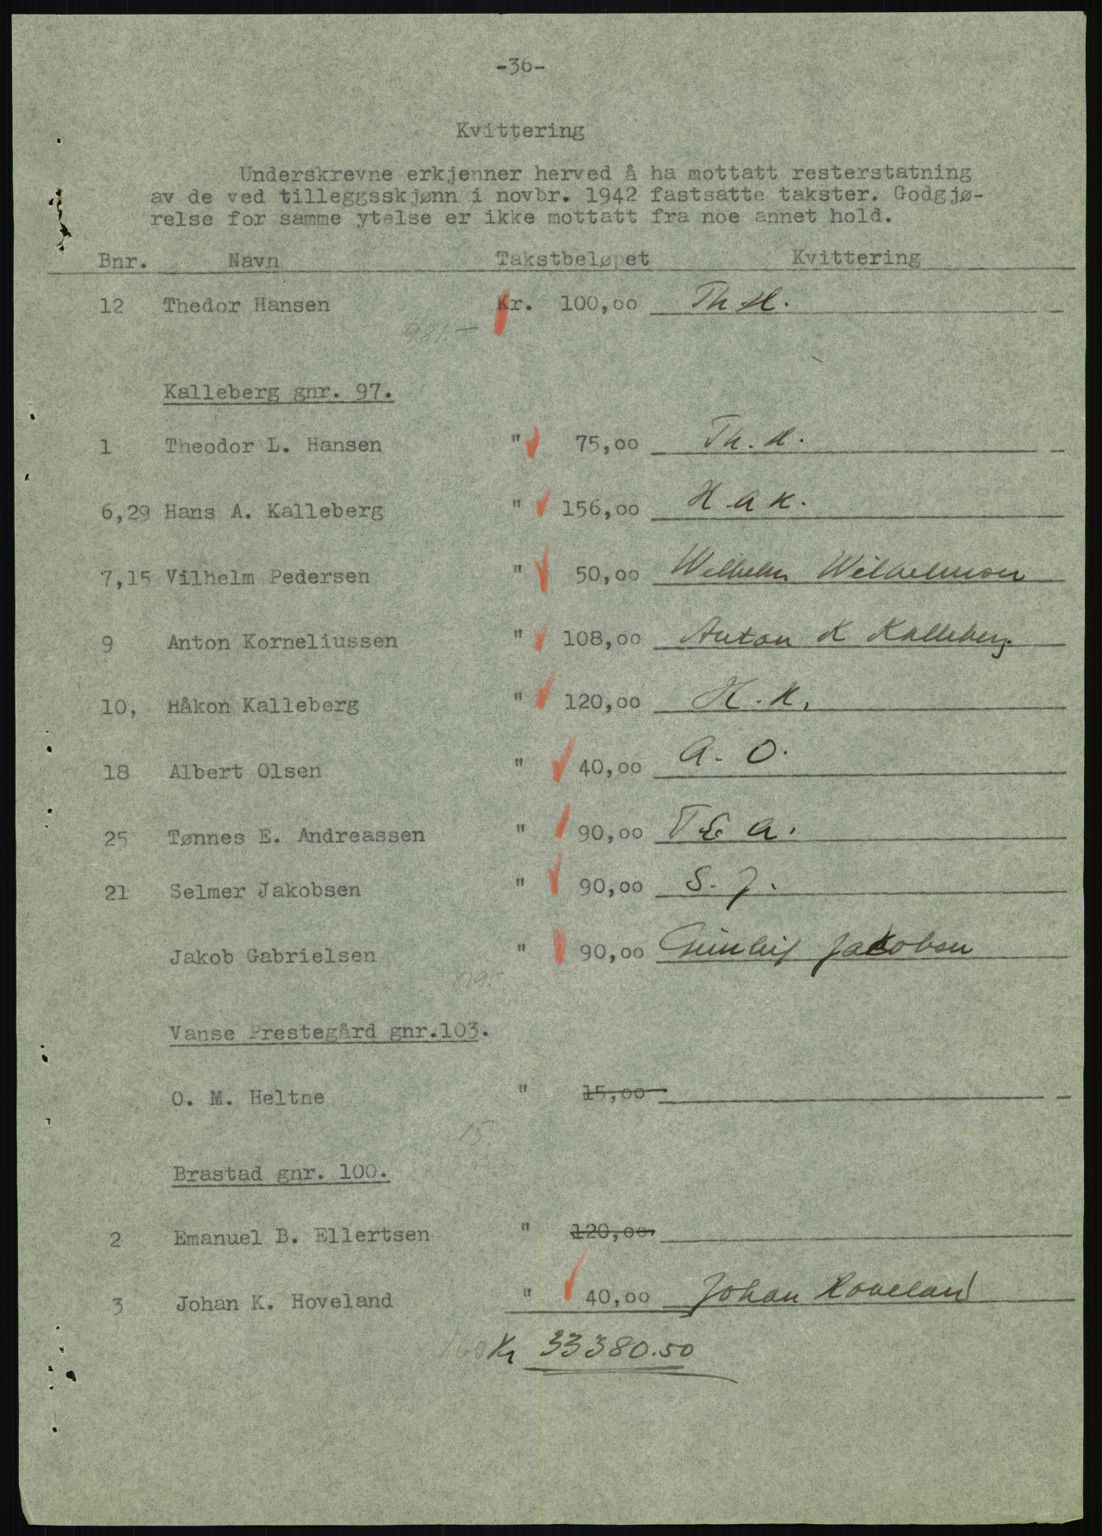 -36-
Kvittering
Underskrevne erkjenner herved å ha mottatt resterstatning
av de ved tilleggsskjønn i novbr. 1942 fastsatte takster. Godgjø-
relse for samme ytelse er ikke mottatt fra noe annet hold.
Bnr. Navn Takstbeløpet Kvittering
12 Thedor Hansen Kr. 100,00 Th H.
981.-
Kalleberg gnr. 97.
1 Theodor L. Hansen " 75,00 Th. H.
6,29 Hans A. Kalleberg " 156,00 H A K.
7,15 Vilhelm Pedersen " 50,00 Wilhelm Wilhelmsen
9 Anton Korneliussen " 108,00 Anton K Kalleberg.
10, Håkon Kalleberg " 120,00 H. K.
18 Albert Olsen " 40,00 A. O.
25 Tønnes E. Andreassen " 90,00 T E A.
21 Selmer Jakobsen " 90,00 S. J.
Jakob Gabrielsen " 90,00 Jakobsen
819.-
Vanse Prestegård gnr.103.
O. M. Heltne " 15,00
15
Brastad gnr. 100.
2 Emanuel B. Ellertsen " 120,00
3 Johan K. Hoveland " 40,00 Johan Hoveland
160 Kr 33380.50